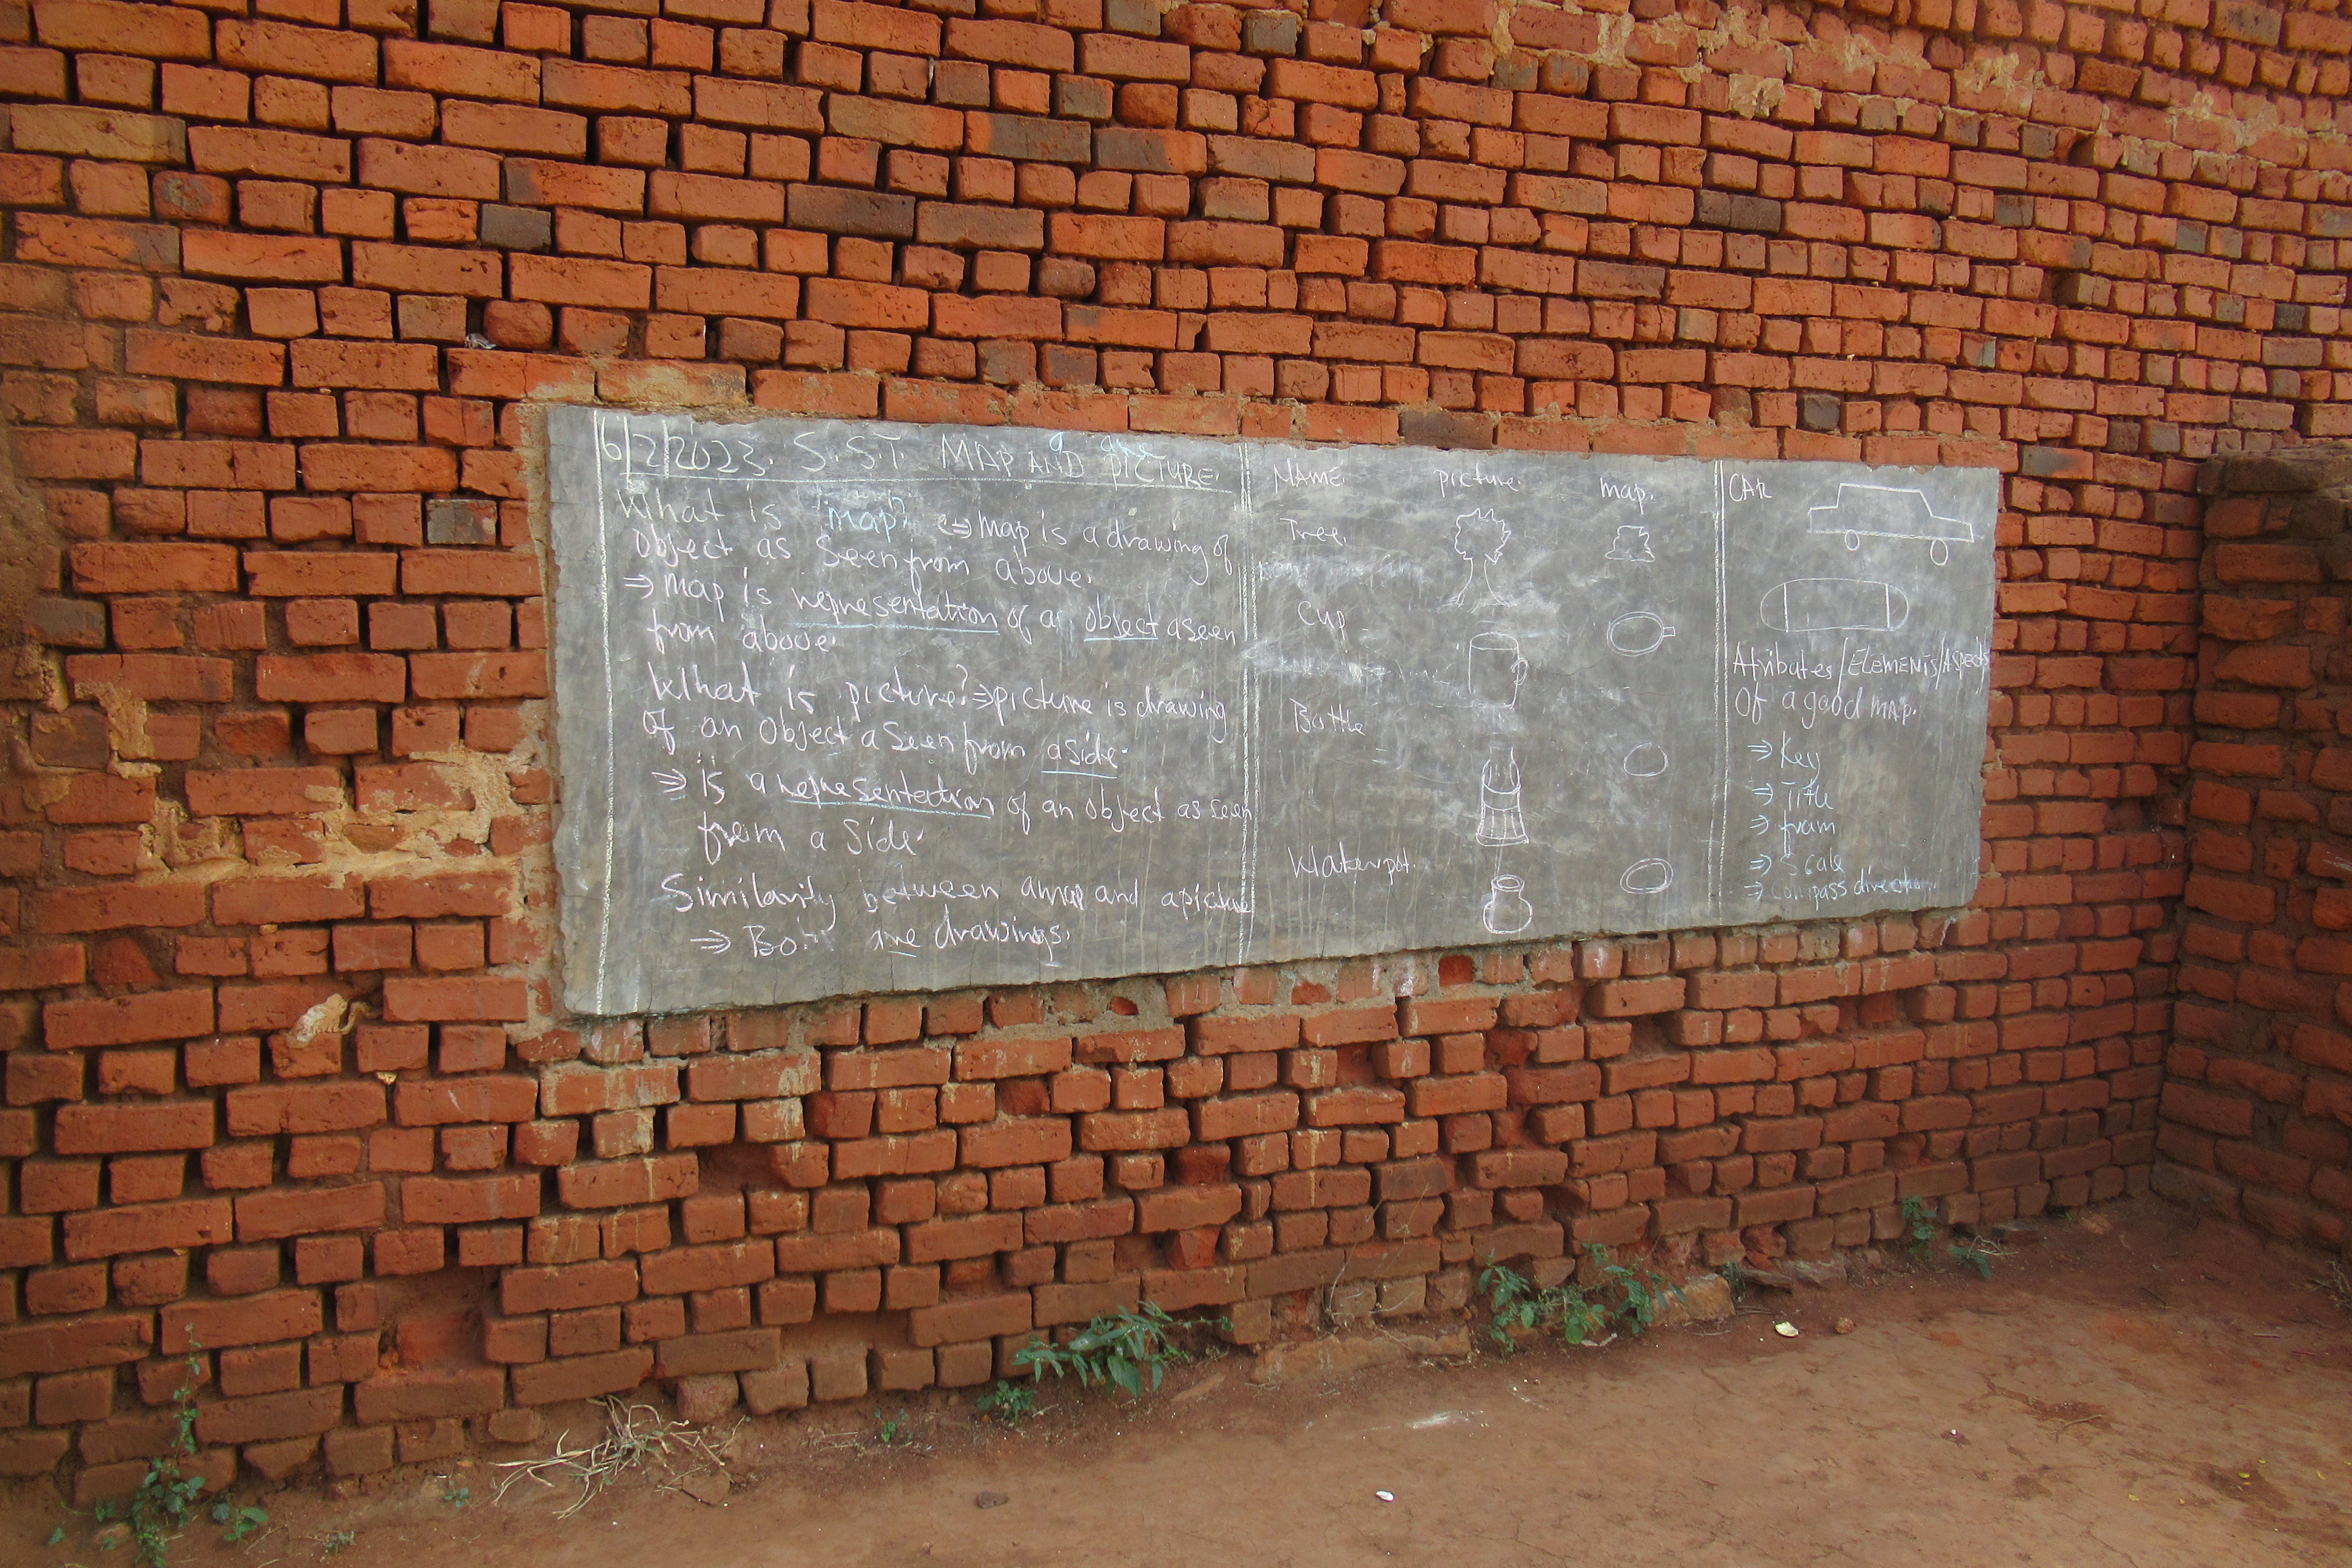 6/2/2023. S.S.T. MAP AND PICTURE.
What is map? => map is a drawing of
object as seen from above.
=> map is representation of a object aseen
from above.
What is picture? => picture is drawing
of an object a seen from a side.
=> is a representation of an object as seen
from a side.
Similarity between amap and apicture
=> are drawings.
NAME. picture. map.
Tree.
Cup
Bottle
Waterpot.
CAR
Atributes/ELEMENTS/ASPECTS
Of a good MAP.
=> Key
=> Title
=> fram
=> Scale
=> Compass direction